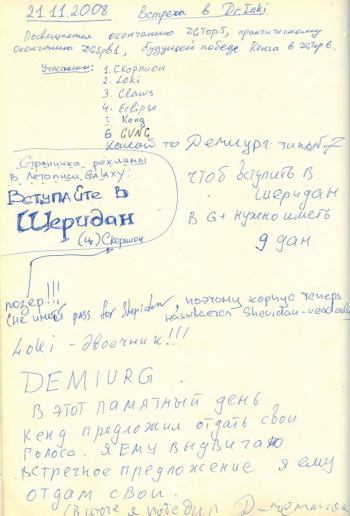 21.11.2008 Встреча в Dr.Inki
Посвящается окончанию DGTop5, практическому
окончанию DGSpb1, будущей победе Кенга в DGтор6.
Участники: 1. Скорпион
2. Loki
3. Claws
4. Eclipse
5. Кенд
6. GVNG
Какой то Демиург типа №7
Страничка рекламы
в Летописи GALAXY:
Вступайте в
Шеридан
(ц) Скорпион
чтоб вступить в
Шеридан
в G+ нужно иметь
9 дан
позер!!!
(не имеет pass for Sheridan, поэтому корпус теперь
называется Sheridan-
Loki - двоечник!!!
DEMIURG.
В этот памятный день
Кенд предложил отдать свои
голоса. Я ему выдвигаю
встречное предложение я ему
отдам свои.
(В итоге я победил D-чемпион